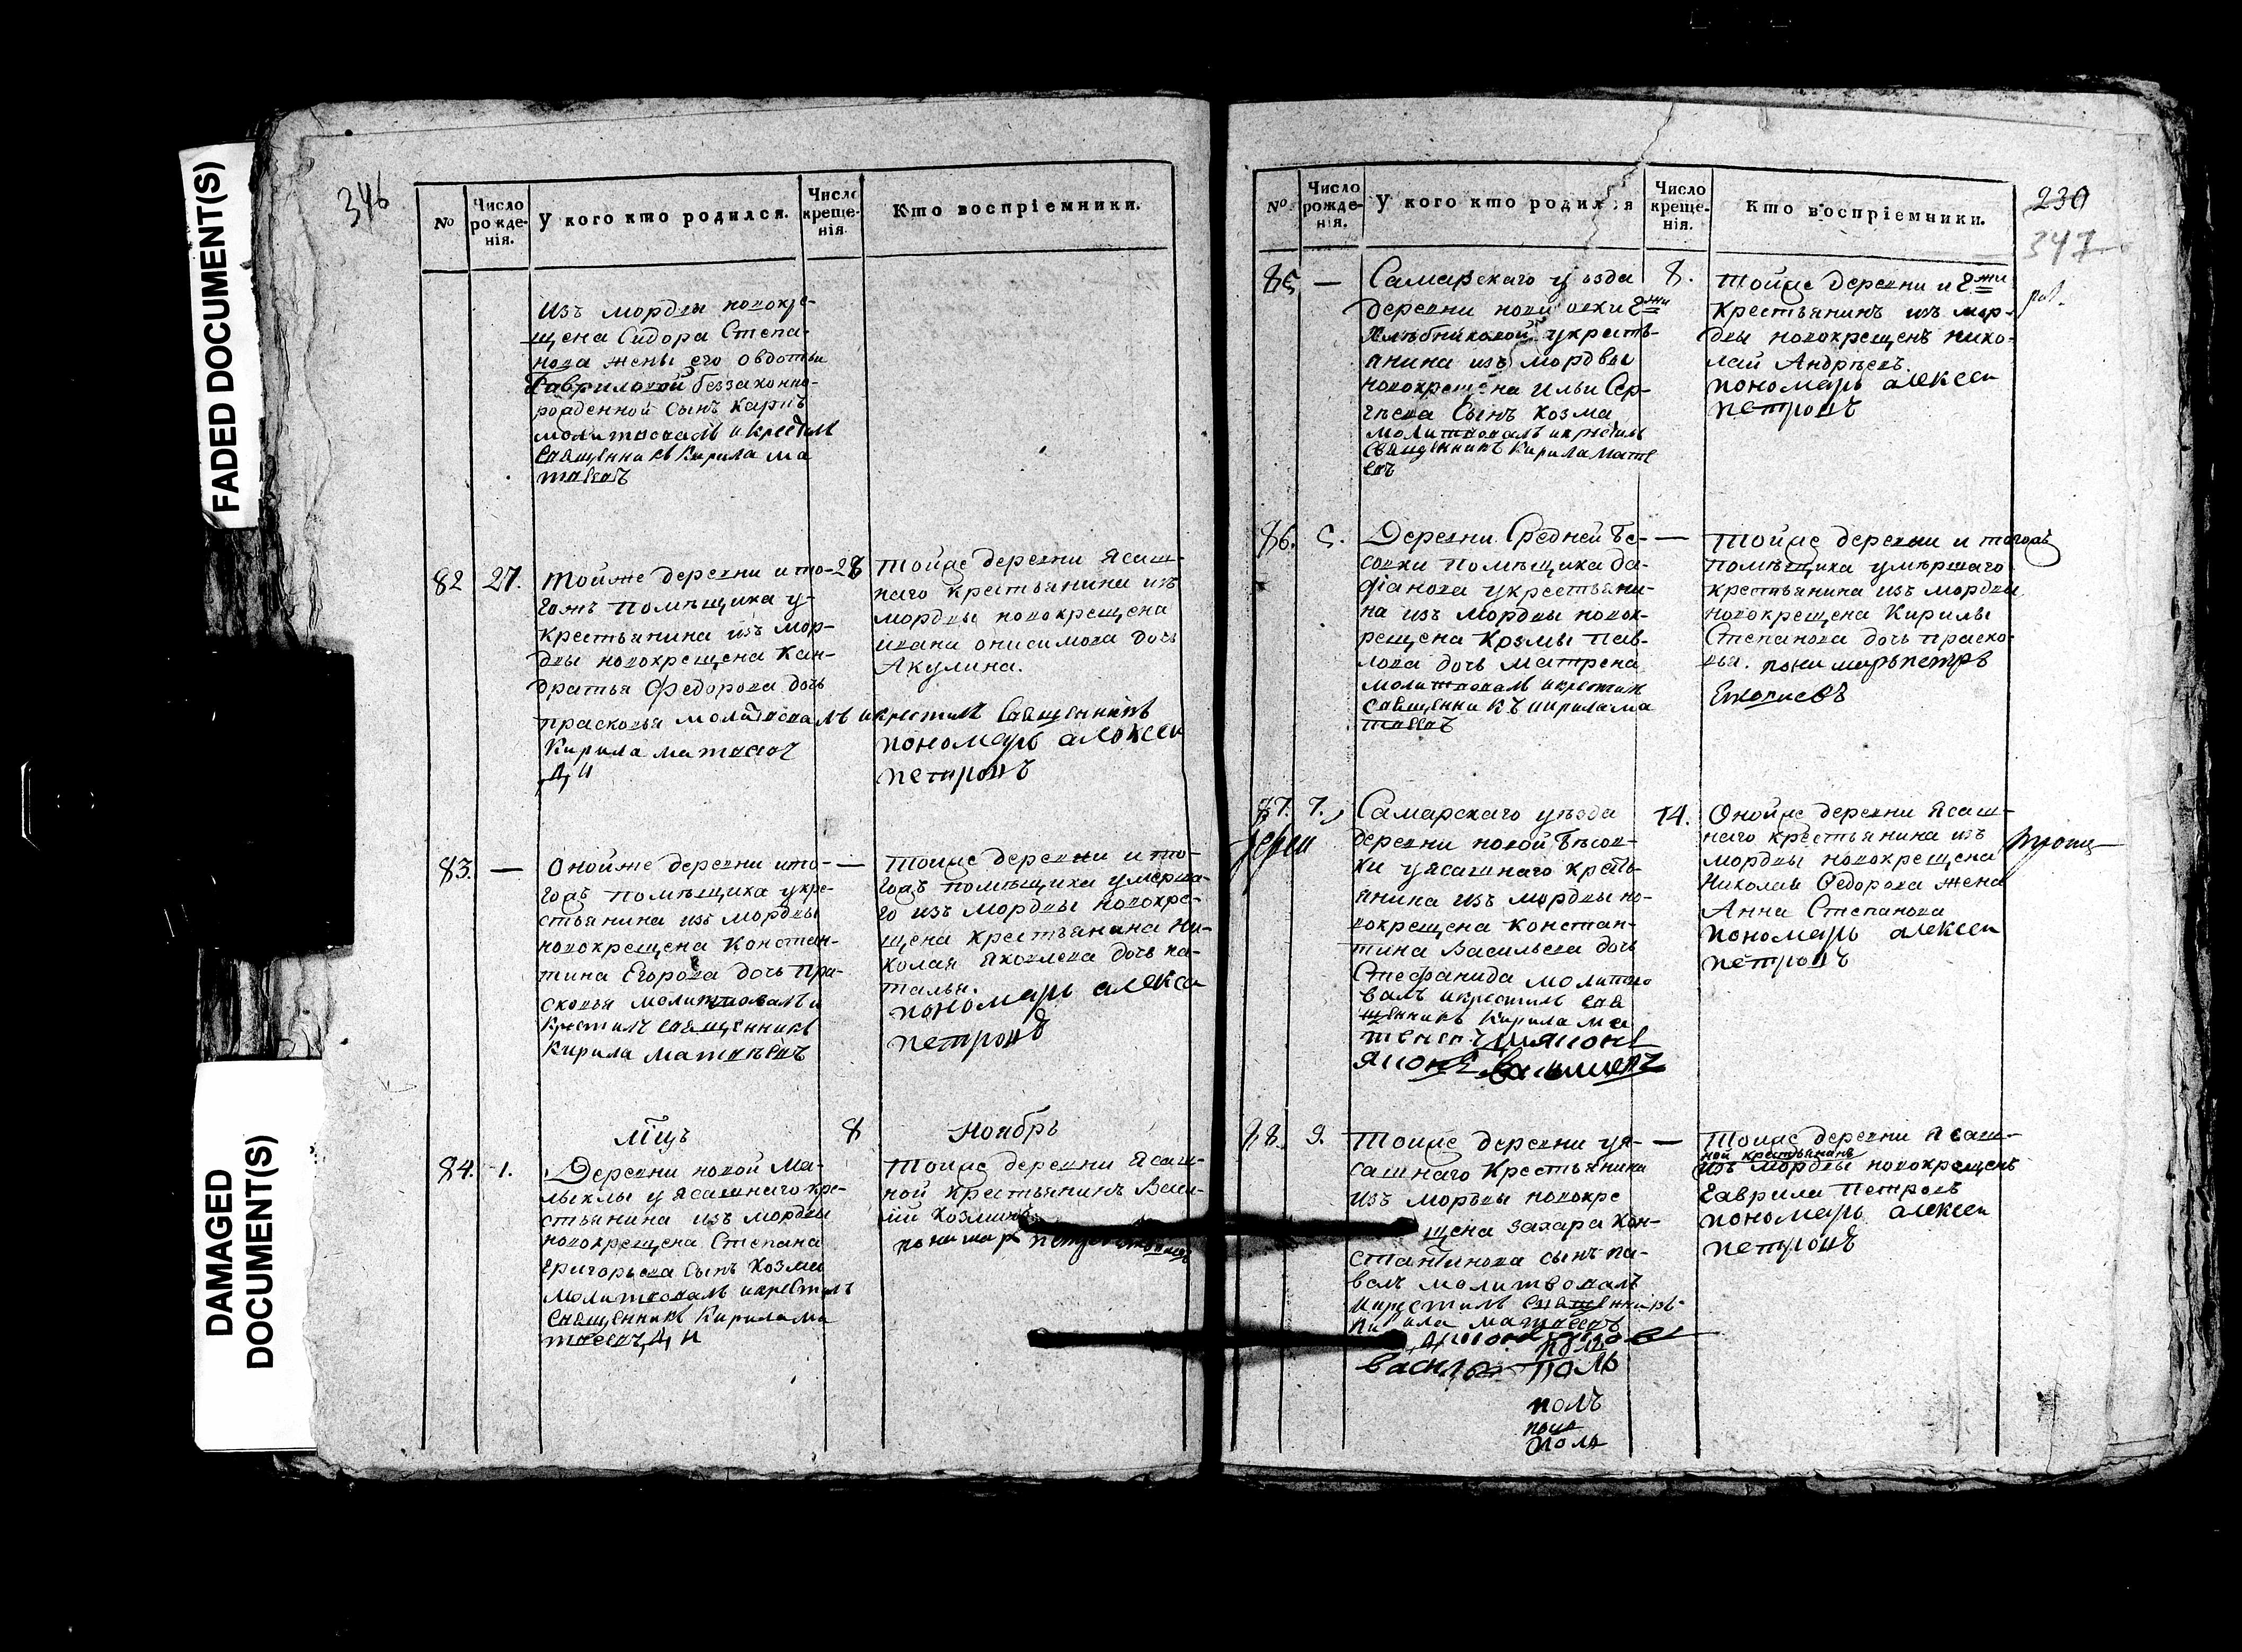 FADED DOCUMENT(S)
DAMAGED
DOCUMENT(S)
346
№
Число
рожде-
нія.
У кого кто родился.
Число
креще-
нія
Кто воспріемники.
изъ мордвы новокре-
щена Сидора Степа-
нова жены его овдотьи
Гавриловой беззаконно-
рожденной сынъ карпъ
молитвовалъ и крестилъ
священникъ Кирила ма
твеевъ
82
27.
тойже деревни и то-
гожъ помѣщика у
крестьянина изъ мор-
двы новокрещена кан-
дратья Федорова дочь
прасковья молитвовалъ и крестилъ священникъ
Кирила матвеевъ
28
тойже деревни ясаш-
наго крестьянина изъ
мордвы новокрещена
ивана онисимова дочь
Акулина.
пономарь алексеи
петровъ
83.
—
Онойже деревни и то-
гожъ помѣщика укре-
стьянина изъ мордвы
новокрещена констан-
тина Егорова дочь пра-
сковья молитвовалъ и
крестилъ священникъ
Кирила матвѣевъ
—
тойже деревни и то-
гожъ помѣщика умерша-
го изъ мордвы новокре-
щена крестьянина ни-
колая яковлева дочь на-
талья.
пономарь алексеи
петровъ
мцъ
Ноябрь
84.
1.
Деревни новой Ма-
лыклы у ясашнаго кре-
стьянина изъ мордвы
новокрещена Степана
григорьева сынъ козма
молитвовалъ и крестилъ
священникъ Кирила ма
твеевъ
8
тойже деревни ясаш-
ной крестьянинъ Васи-
лій козминъ
пономарь петръ
230
347
№
Число
рожде-
нія.
У кого кто родился
Число
креще-
нія.
Кто воспріемники.
85
—
Самарскаго уѣзда
деревни
Хлѣбниковой укресть-
янина изъ мордвы
новокрещена ильи Сер-
гѣева сынъ козма
молитвовалъ и крестилъ
священникъ Кирила матве
евъ
8.
тойже деревни и
крестьянинъ изъ мор-
двы новокрещенъ нико-
лай Андрѣевъ.
пономарь алексеи
петровъ
86.
5.
Деревни Средней бе-
совки помѣщика да-
фіанова укрестьяни-
на изъ мордвы новок-
рещена козмы пав-
лова дочь матрена
молитвовалъ и крестилъ
священникъ кирила ма
твеевъ
—
тойже деревни и тогожъ
помѣщика умѣршаго
крестьянина изъ мордвы
новокрещена Кирилы
Степанова дочь праско-
вья. пономарь петръ
87.
7.
Самарскаго уѣзда
деревни новой бѣсов-
ки уясашнаго кресть-
янина изъ мордвы но-
вокрещена констан-
тина Васильева дочь
Стефанида молитво
валъ и крестилъ свя
щенникъ Кирила ма
твеевъ
14.
Онойже деревни ясаш-
наго крестьянина изъ
мордвы новокрещена
николая Федорова жена
Анна Степанова
пономарь алексеи
петровъ
88.
9.
Тойже деревни уя-
сашнаго крестьянина
изъ мордвы новокре
щена захара кон-
стантинова сынъ па-
велъ молитвовалъ
и крестилъ священникъ
кирила матвеевъ
—
Тойже деревни ясаш-
ной крестьянинъ
изъ мордвы новокрещенъ
гаврила петровъ
пономарь алексеи
петровъ
полъ